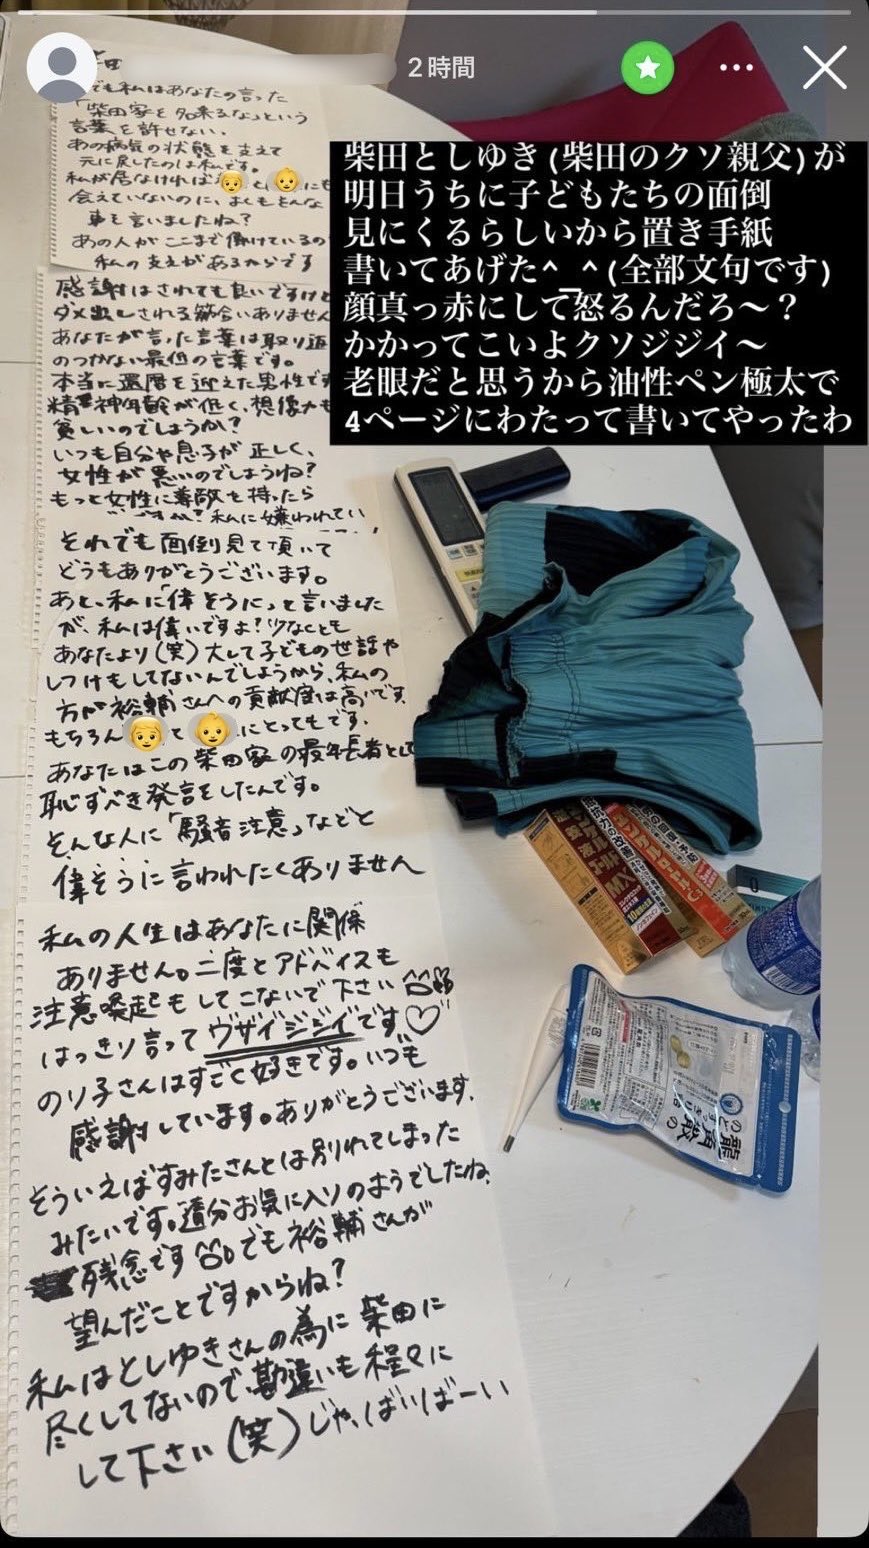 2時間
柴田としゆき(柴田のクソ親父)が
明日うちに子どもたちの面倒
見にくるらしいから置き手紙
書いてあげた^_^(全部文句です)
顔真っ赤にして怒るんだろ〜？
かかってこいよクソジジイ〜
老眼だと思うから油性ペン極太で
4ページにわたって書いてやったわ
でも私はあなたの言った
「柴田家を名乗るな」という
言葉を許せない。
あの病気の状態を支えて
元に戻したのは私です。
私が居なければ👦と👶にも
会えていないのに、よくもそんな
事を言いましたね？
あの人がここまで働けているの
私の支えがあるからです
感謝はされても良いですけど
ダメ出しされる筋合いありません
あなたが言った言葉は取り返
のつかない最低の言葉です。
本当に還暦を迎えた男性です
精神年齢が低く、想像力も
貧しいのでしょうか？
いつも自分や息子が正しく、
女性が悪いのでしょうね？
もっと女性に尊敬を持ったら
ですか？私に嫌われてい
それでも面倒見て頂いて
どうもありがとうございます。
あと、私に「偉そうに」っと言いました
が、私は偉いですよ？少なくとも
あなたより(笑)大して子どもの世話や
しつけもしてないんでしょうから、私の
方が裕輔さんへの貢献度は高いです。
もちろん👦と👶にとってもです。
あなたはこの柴田家の最年長者として
恥ずべき発言をしたんです。
そんな人に「騒音注意」などと
偉そうに言われたくありません
私の人生はあなたに関係
ありません。二度とアドバイスも
注意喚起もしてこないで下さい
はっきり言ってウザイジジイです♡
のり子さんはすごく好きです。いつも
感謝しています。ありがとうございます。
そういえばすみたさんとは別れてしまった
みたいです。随分お気に入りのようでしたね、
残念です でも裕輔さんが
望んだことですからね？
私はとしゆきさんの為に柴田に
尽くしてないので、勘違いも程々に
して下さい(笑)じゃ、ばいばーい
龍角散の
のどすっきり